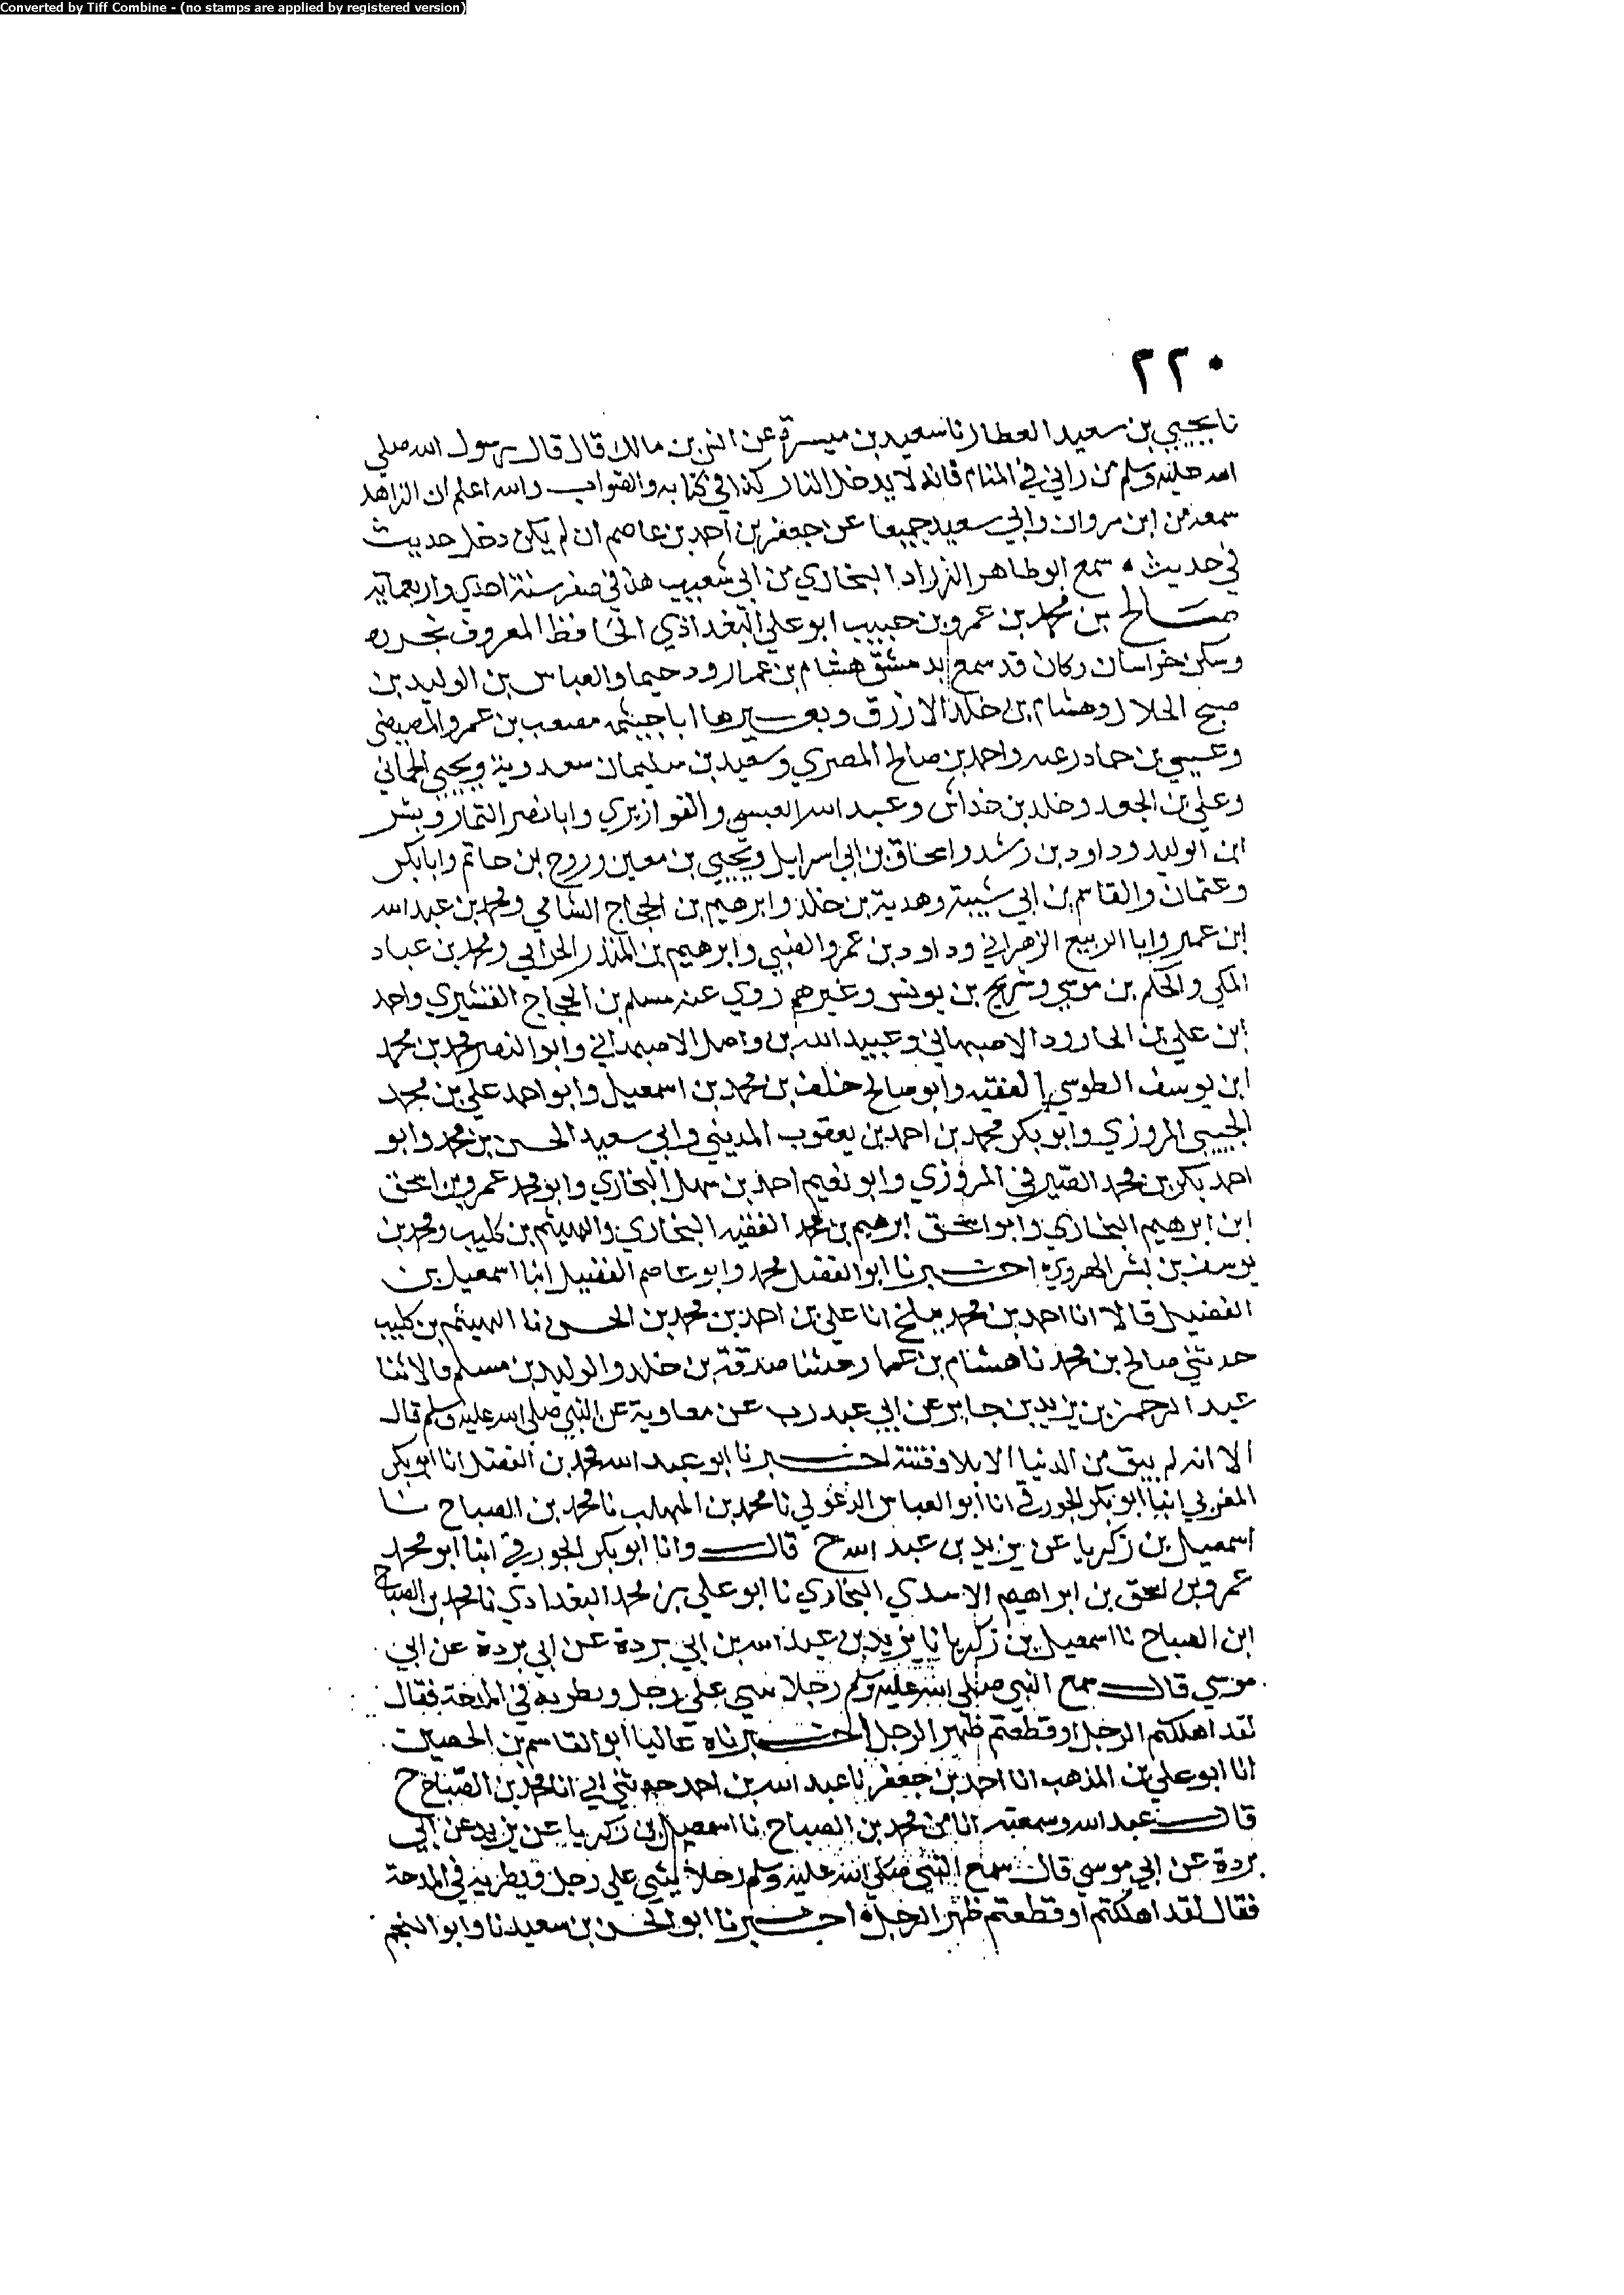 Converted by Tiff Combine - (no stamps are applied by registered version)
٢٢٠
نا يحيي بن سعيد العطار نا سعيد بن ميسرة عن انس بن مالك قال قال رسول الله صلي
الله عليه وسلم من راني في المنام فانه لا يدخل النار كذا في كتابه والصواب والله اعلم ان الزاهد
سمعه من ابن مروان وابي سعيد جميعا عن جعفر بن احمد بن عاصم ان لم يكن دخل حديث
في حديث • سمع ابو طاهر الزراد البخاري من ابي شعيب هذا في صفر سنة احدي واربعماية
صالح بن محمد بن عمرو بن حبيب ابو علي البغداذي الحافظ المعروف بجزره
وسكن خراسان وكان قد سمع بدمشق هشام بن عمار ودحيما والعباس بن الوليد بن
صبح الخلال وهشام بن خلد الازرق وبغيرها ابا خيثمه مصعب بن عمرو المصيصي
وعيسي بن حماد زغبه واحمد بن صالح المصري وسعيد بن سليمان سعدوية ويحيي الحماني
وعلي بن الجعد وخلد بن خداش وعبيد الله العبسي والقواريري وابا نصر التمار وبشر
ابن الوليد وداود بن رشد واسحاق بن ابي اسرايل ويحيي بن معين وروح بن حاتم وابا بكر
وعثمان والقاسم بن ابي شيبة وهدبة بن خلد وابرهيم بن الحجاج الشامي ومحمد بن عبد الله
ابن عمير وابا الربيع الزهراني وداود بن عمرو الضبي وابرهيم بن المنذر الحزامي ومحمد بن عباد
المكي والحكم بن موسي وسريج بن يونس وغيرهم روي عنه مسلم بن الحجاج القشيري واحمد
ابن علي بن الجارود الاصبهاني وعبيد الله بن واصل الاصبهاني وابو النصر محمد بن محمد
ابن يوسف الطوسي الفقيه وابو صالح خلف بن محمد بن اسمعيل وابو احمد علي بن محمد
الحبيبي المروزي وابو بكر محمد بن احمد بن يعقوب المديني وابي سعيد الحسن بن محمد وابو
احمد بكر بن محمد الصيرفي المروزي وابو نعيم احمد بن سهل البخاري وابو محمد عمرو بن اسحق
ابن ابرهيم البخاري وابو اسحق ابرهيم بن محمد الفقيه البخاري والهيثم بن كليب ومحمد بن
يوسف بن بشر الهروي اخبرنا ابو الفضل محمد وابو عاصم الفضيل ابنا اسمعيل بن
الفضيل قالا انا احمد بن محمد ببلخ انا علي بن احمد بن محمد بن الحسن نا الهيثم بن كليب
حدثني صالح بن محمد نا هشام بن عمار حدثنا صدقة بن خلد والوليد بن مسلم قالا ثنا
عبد الرحمن بن يزيد بن جابر عن ابي عبد رب عن معاوية عن النبي صلى الله عليه وسلم قال
الا انه لم يبق من الدنيا الا بلا وفتنة اخبرنا ابو عبد الله محمد بن الفضل انا ابو بكر
المغربي انبا ابو بكر الجوزقي انا ابو العباس الدغولي نا محمد بن المهلب نا محمد بن الصباح نا
اسمعيل بن زكريا عن يزيد بن عبد الله ح قال وانا ابو بكر الجوزقي ابنا ابو محمد
عمرو بن اسحق بن ابراهيم الاسدي البخاري نا ابو علي بن محمد البغدادي نا محمد بن الصباح
ابن الصباح نا اسمعيل بن زكريا نا يزيد بن عبد الله بن ابي بردة عن ابي بردة عن ابي
موسي قال سمع النبي صلى الله عليه وسلم رجلا يثني علي رجل ويطريه في المدحة فقال
لقد اهلكتم الرجل او قطعتم ظهر الرجل اخبرناه عاليا ابو القاسم بن الحصين
انا ابو علي بن المذهب انا احمد بن جعفر نا عبد الله بن احمد حدثني ابي انا محمد بن الصباح ح
قال عبد الله وسمعته انا من محمد بن الصباح نا اسمعيل بن زكريا عن يزيد عن ابي
بردة عن ابي موسي قال سمع النبي صلى الله عليه وسلم رجلا يثني علي رجل ويطريه في المدحة
فقال لقد اهلكتم او قطعتم ظهر الرجل اخبرنا ابو الحسن بن سعيد نا وابو النجم